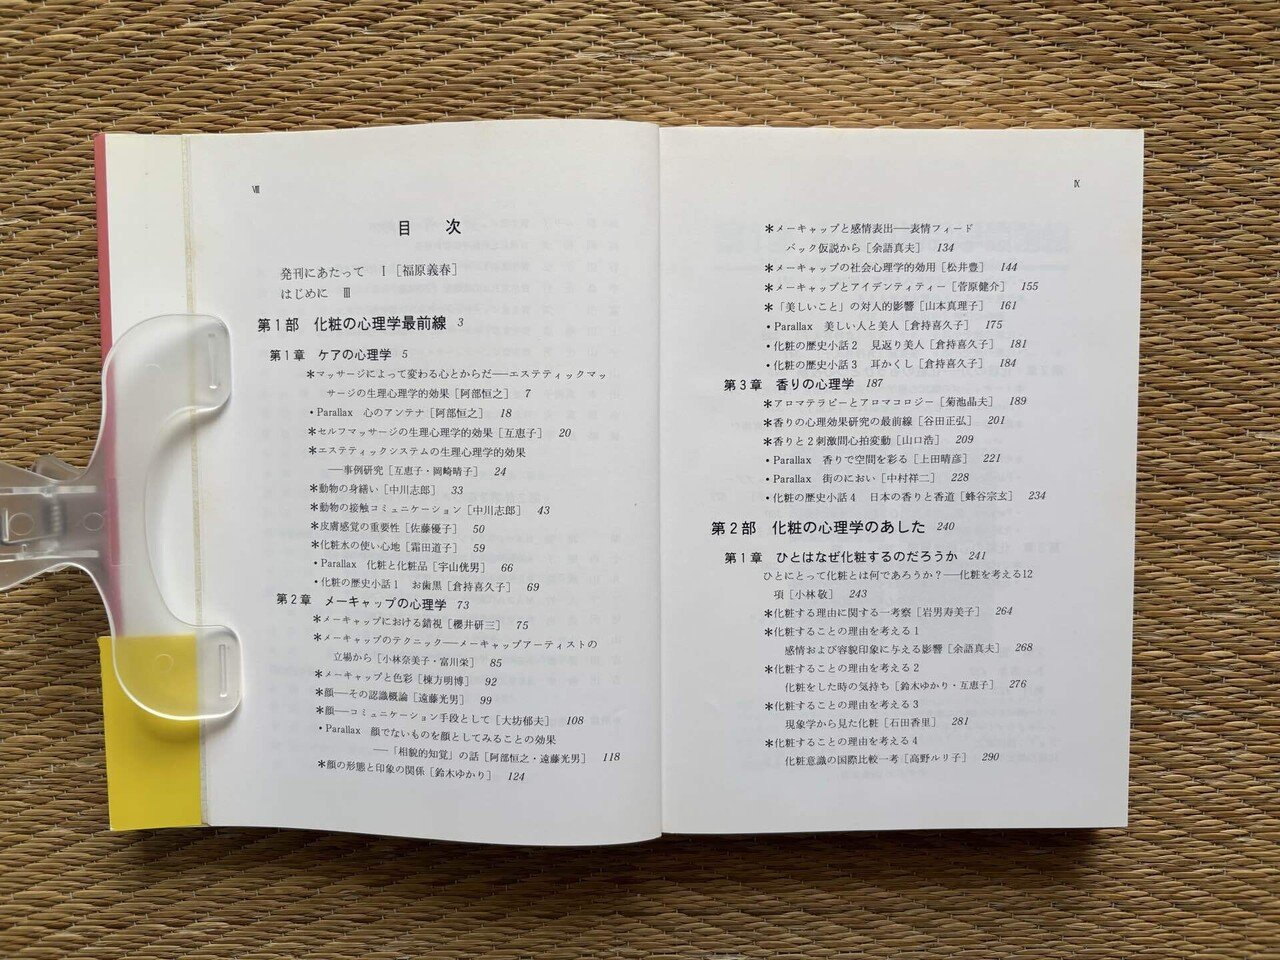 Ⅷ
目 次
発刊にあたって Ⅰ［福原義春］
はじめに Ⅲ
第1部 化粧の心理学最前線 3
第1章 ケアの心理学 5
＊マッサージによって変わる心とからだ──エステティックマッ
サージの生理心理学的効果［阿部恒之］ 7
・Parallax 心のアンテナ［阿部恒之］ 18
＊セルフマッサージの生理心理学的効果［互恵子］ 20
＊エステティックシステムの生理心理学的効果
──事例研究［互恵子・岡崎晴子］ 24
＊動物の身繕い［中川志郎］ 33
＊動物の接触コミュニケーション［中川志郎］ 43
＊皮膚感覚の重要性［佐藤優子］ 50
＊化粧水の使い心地［霜田道子］ 59
・Parallax 化粧と化粧品［宇山侊男］ 66
・化粧の歴史小話1 お歯黒［倉持喜久子］ 69
第2章 メーキャップの心理学 73
＊メーキャップにおける錯視［櫻井研三］ 75
＊メーキャップのテクニック──メーキャップアーティストの
立場から［小林奈美子・富川栄］ 85
＊メーキャップと色彩［棟方明博］ 92
＊顔──その認識概論［遠藤光男］ 99
＊顔──コミュニケーション手段として［大坊郁夫］ 108
・Parallax 顔でないものを顔としてみることの効果
──「相貌的知覚」の話［阿部恒之・遠藤光男］ 118
＊顔の形態と印象の関係［鈴木ゆかり］ 124
Ⅸ
＊メーキャップと感情表出──表情フィード
バック仮説から［余語真夫］ 134
＊メーキャップの社会心理学的効用［松井豊］ 144
＊メーキャップとアイデンティティー［菅原健介］ 155
＊「美しいこと」の対人的影響［山本真理子］ 161
・Parallax 美しい人と美人［倉持喜久子］ 175
・化粧の歴史小話2 見返り美人［倉持喜久子］ 181
・化粧の歴史小話3 耳かくし［倉持喜久子］ 184
第3章 香りの心理学 187
＊アロマテラピーとアロマコロジー［菊池晶夫］ 189
＊香りの心理効果研究の最前線［谷田正弘］ 201
＊香りと2刺激間心拍変動［山口浩］ 209
・Parallax 香りで空間を彩る［上田晴彦］ 221
・Parallax 街のにおい［中村祥二］ 228
・化粧の歴史小話4 日本の香りと香道［蜂谷宗玄］ 234
第2部 化粧の心理学のあした 240
第1章 ひとはなぜ化粧するのだろうか 241
ひとにとって化粧とは何であろうか？──化粧を考える12
項［小林敬］ 243
＊化粧する理由に関する一考察［岩男寿美子］ 264
＊化粧することの理由を考える1
感情および容貌印象に与える影響［余語真夫］ 268
＊化粧することの理由を考える2
化粧をした時の気持ち［鈴木ゆかり・互恵子］ 276
＊化粧することの理由を考える3
現象学から見た化粧［石田香里］ 281
＊化粧することの理由を考える4
化粧意識の国際比較一考［高野ルリ子］ 290